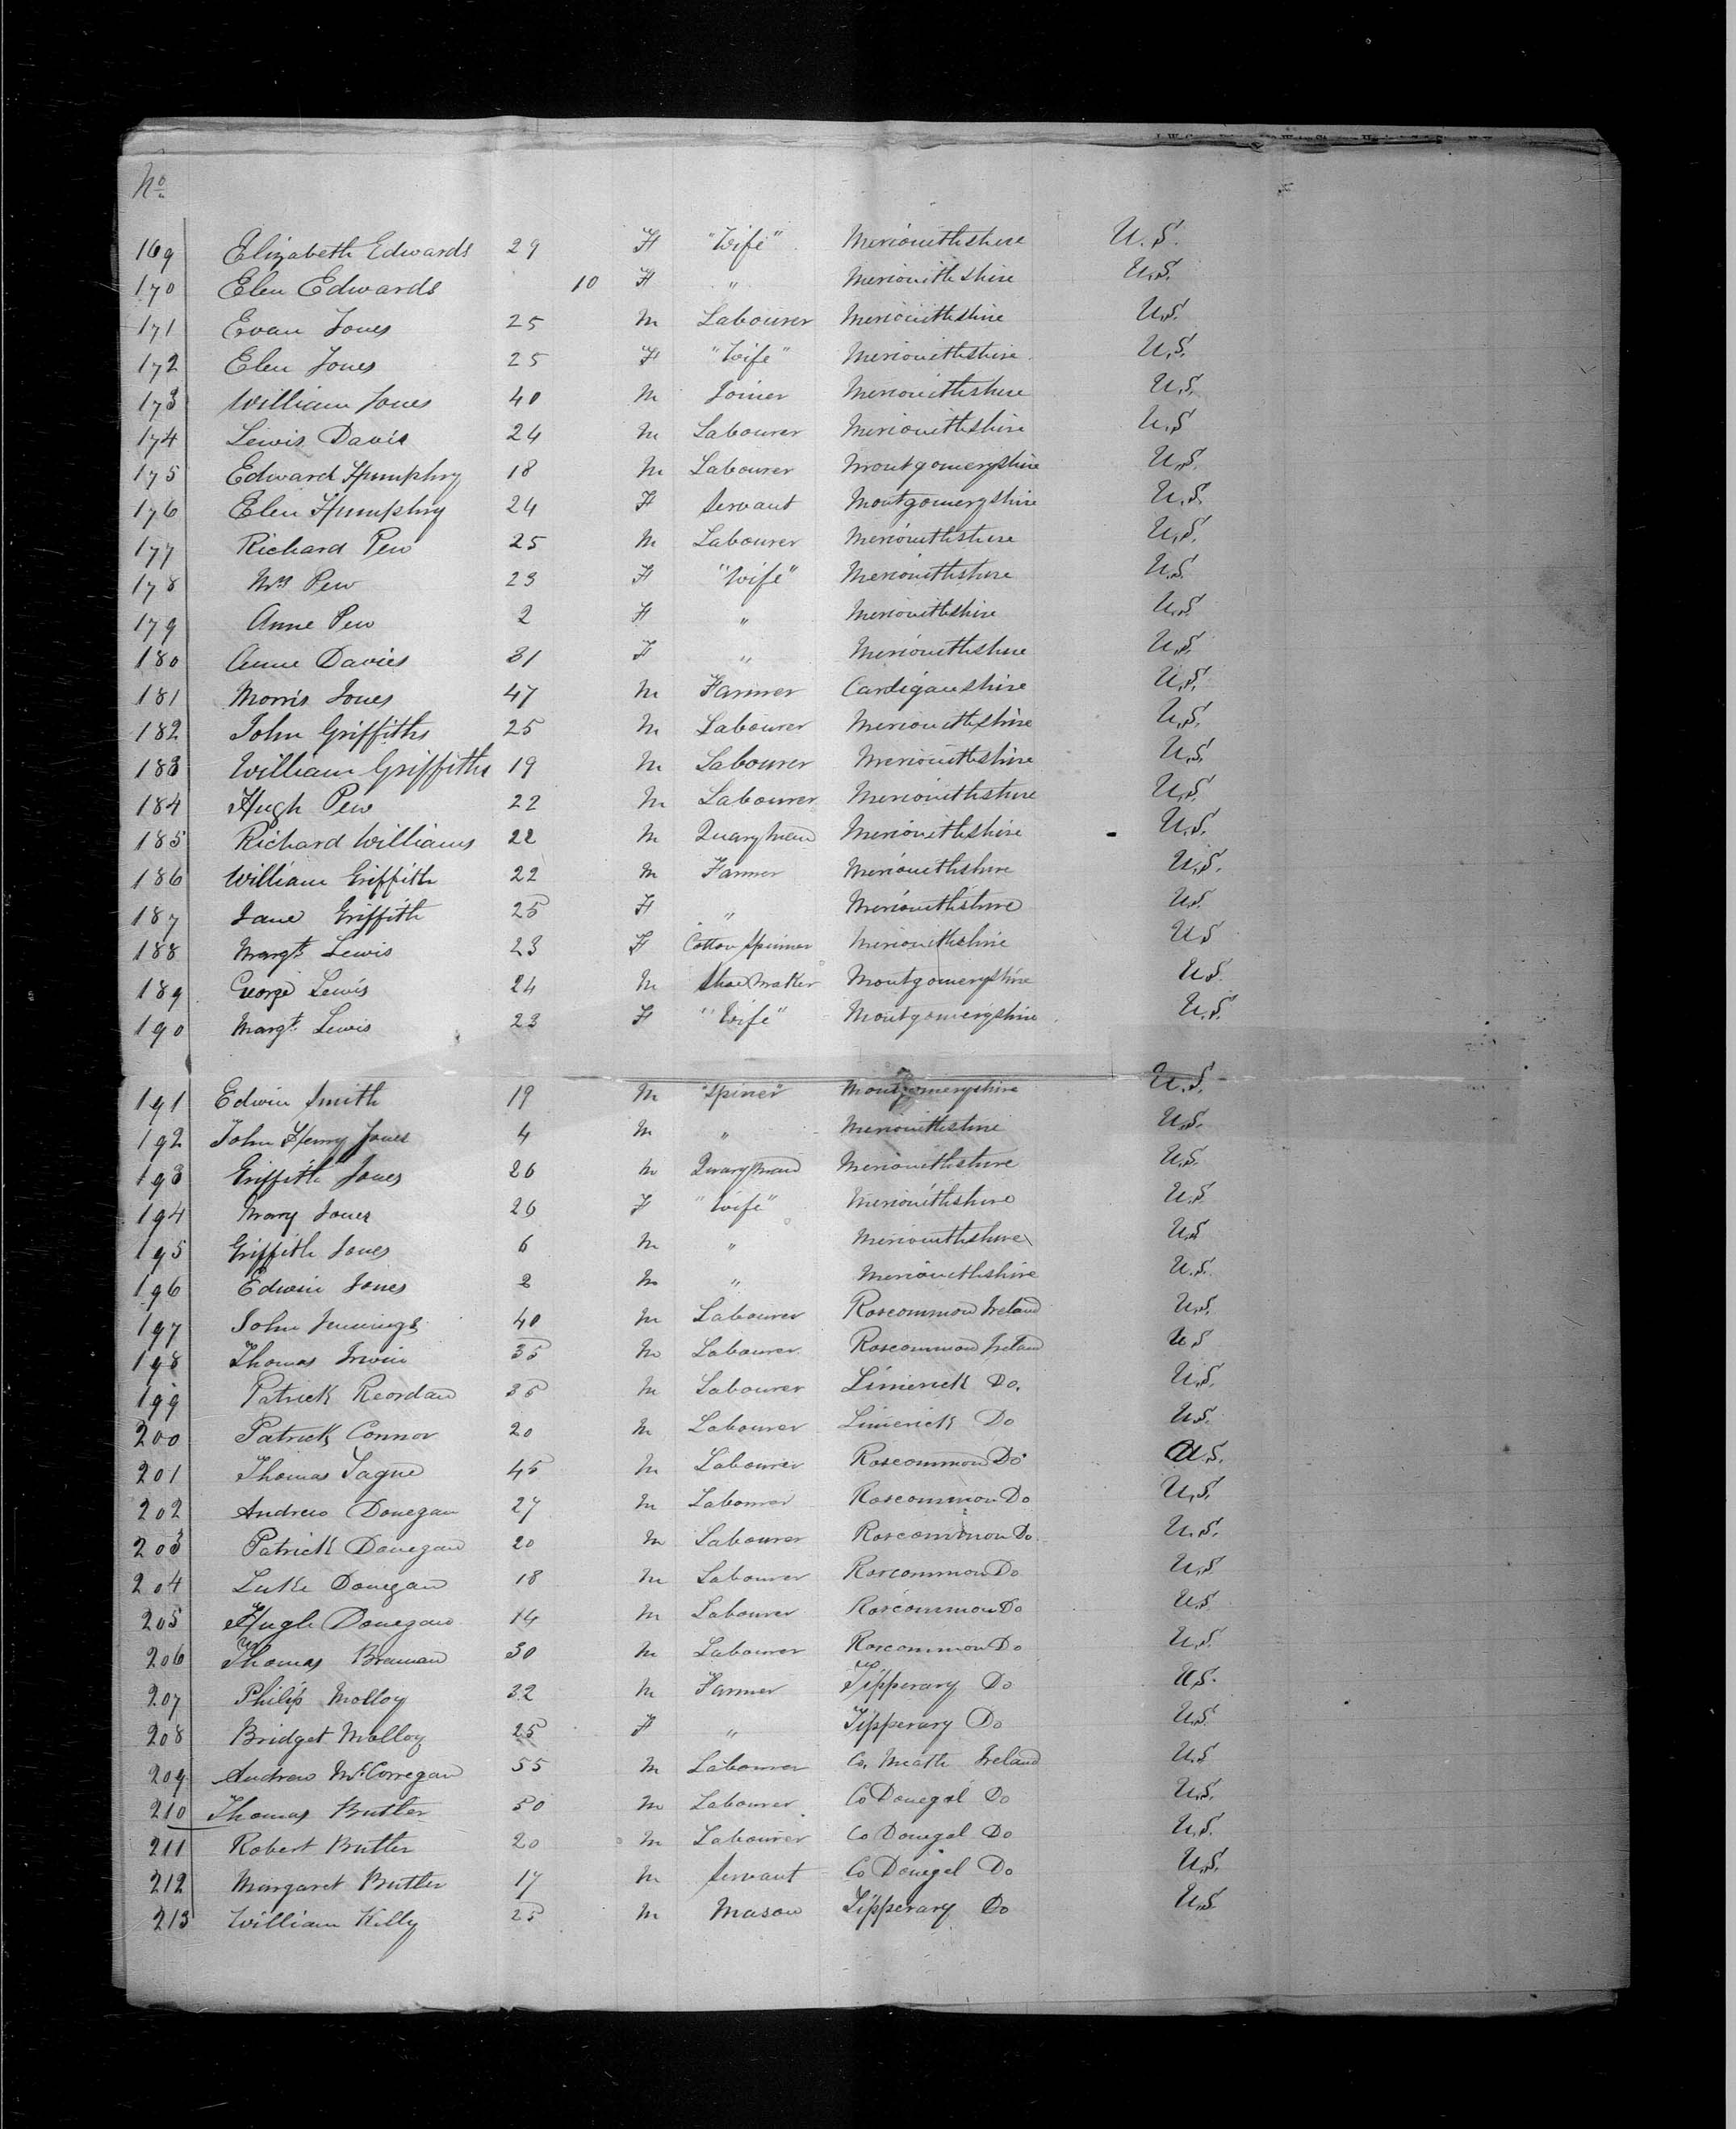 No
169 Elizabeth Edwards 29 F "Wife" Merionithshire U.S.
170 Elen Edwards 10 F " Merionithshire U.S.
171 Evan Jones 25 M Labourer Merionithshire U.S.
172 Elen Jones 25 F "Wife" Merionithshire U.S.
173 William Jones 40 M Joiner Merionithshire U.S.
174 Lewis Davis 24 M Labourer Merionithshire U.S
175 Edward Humphry 18 M Labourer Montgomeryshire U.S.
176 Elen Humphry 24 F Servant Montgomeryshire U.S.
177 Richard Pew 25 M Labourer Merionithshire U.S.
178 Mrs Pew 23 F "Wife" Merionithshire U.S.
179 Anne Pew 2 F " Merionithshire U.S
180 Anne Davies 31 F " Merionithshire U.S.
181 Morris Jones 47 M Farmer Cardiganshire U.S.
182 John Griffiths 25 M Labourer Merionithshire U.S.
183 William Griffiths 19 M Labourer Merionithshire U.S.
184 Hugh Pew 22 M Labourer Merionithshire U.S.
185 Richard Williams 22 M Quaryman Merionithshire U.S.
186 William Griffith 22 M Farmer Merionithshire U.S.
187 Jane Griffith 25 F " Merionithshire U.S
188 Margt Lewis 23 F Cotton Spinner Merionithshire U.S
189 George Lewis 24 M Shoe Maker Montgomeryshire U.S.
190 Margt Lewis 23 F "Wife" Montgomeryshire U.S.
191 Edwin Smith 19 M "Spiner" Montgomeryshire U.S.
192 John Henry Jones 4 M " Merionithshire U.S.
193 Griffith Jones 26 M Quaryman Merionithshire U.S.
194 Mary Jones 26 F "Wife" Merionithshire U.S
195 Griffith Jones 6 M " Merionithshire U.S
196 Edwin Jones 2 M " Merionithshire U.S.
197 John Jennings 40 M Labourer Roscommon Ireland U.S.
198 Thomas Irwin 35 M Labourer Roscommon Ireland U.S
199 Patrick Reordan 25 M Labourer Limerick Do. U.S.
200 Patrick Connor 20 M Labourer Limerick Do U.S.
201 Thomas Tague 45 M Labourer Roscommon Do U.S.
202 Andrew Donegan 27 M Labourer Roscommon Do U.S.
203 Patrick Donegan 20 M Labourer Roscommon Do U.S.
204 Luke Donegan 18 M Labourer Roscommon Do U.S
205 Hugh Donegan 14 M Labourer Roscommon Do U.S
206 Thomas Brennan 30 M Labourer Roscommon Do U.S.
207 Philip Molloy 32 M Farmer Tipperary Do U.S.
208 Bridget Molloy 25 F " Tipperary Do U.S
209 Andrew McCorregan 55 M Labourer Co. Meath Ireland U.S
210 Thomas Butler 50 M Labourer Co Donegal Do U.S.
211 Robert Butler 20 M Labourer Co Donegal Do U.S.
212 Margaret Butler 17 M Servant Co Donegal Do U.S.
213 William Kelly 25 M Mason Tipperary Do U.S